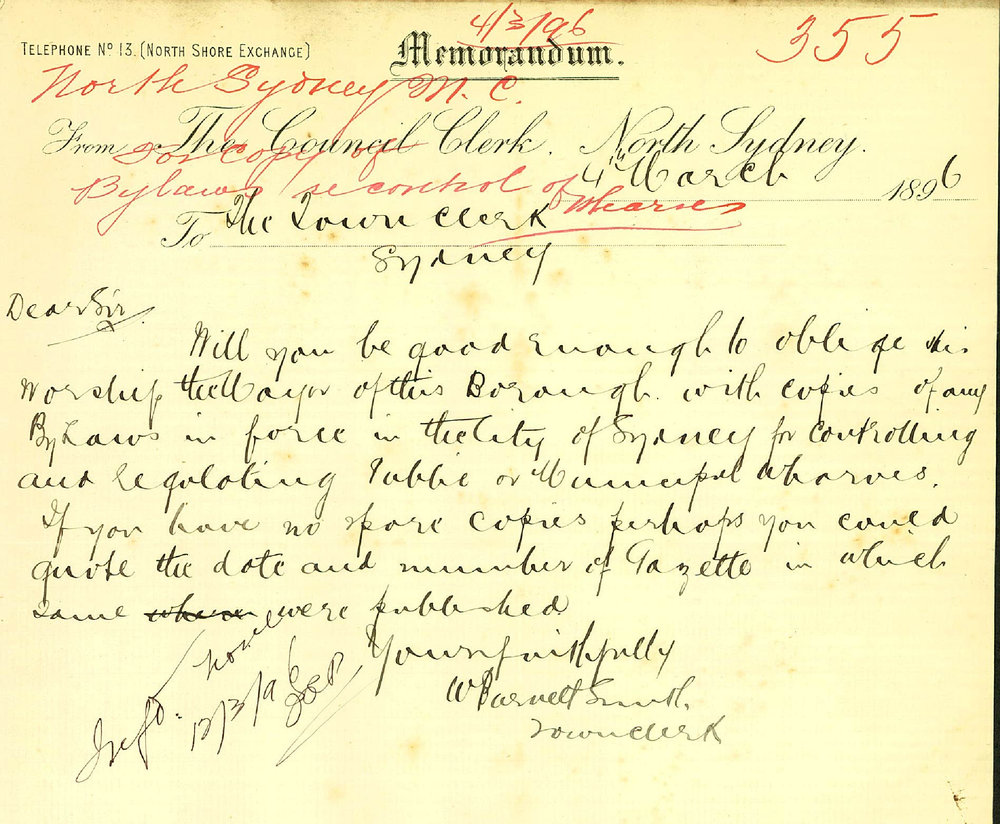 4/3/96
355
TELEPHONE No 13. (NORTH SHORE EXCHANGE)
Memorandum.
North Sydney M. C.
From The Council Clerk, North Sydney.
For copy of
4th March 1896
Bylaws re control of Wharves
To The Town Clerk
Sydney
Dear Sir.
Will you be good enough to oblige His
Worship the Mayor of this Borough with copies of any
By Laws in force in the City of Sydney for controlling
and regulating Public or Municipal Wharves.
If you have no spare copies perhaps you could
quote the date and number of Gazette in which
same where were published
Yours faithfully
W Barnett Smith
Town Clerk
Infd.
12/3/96